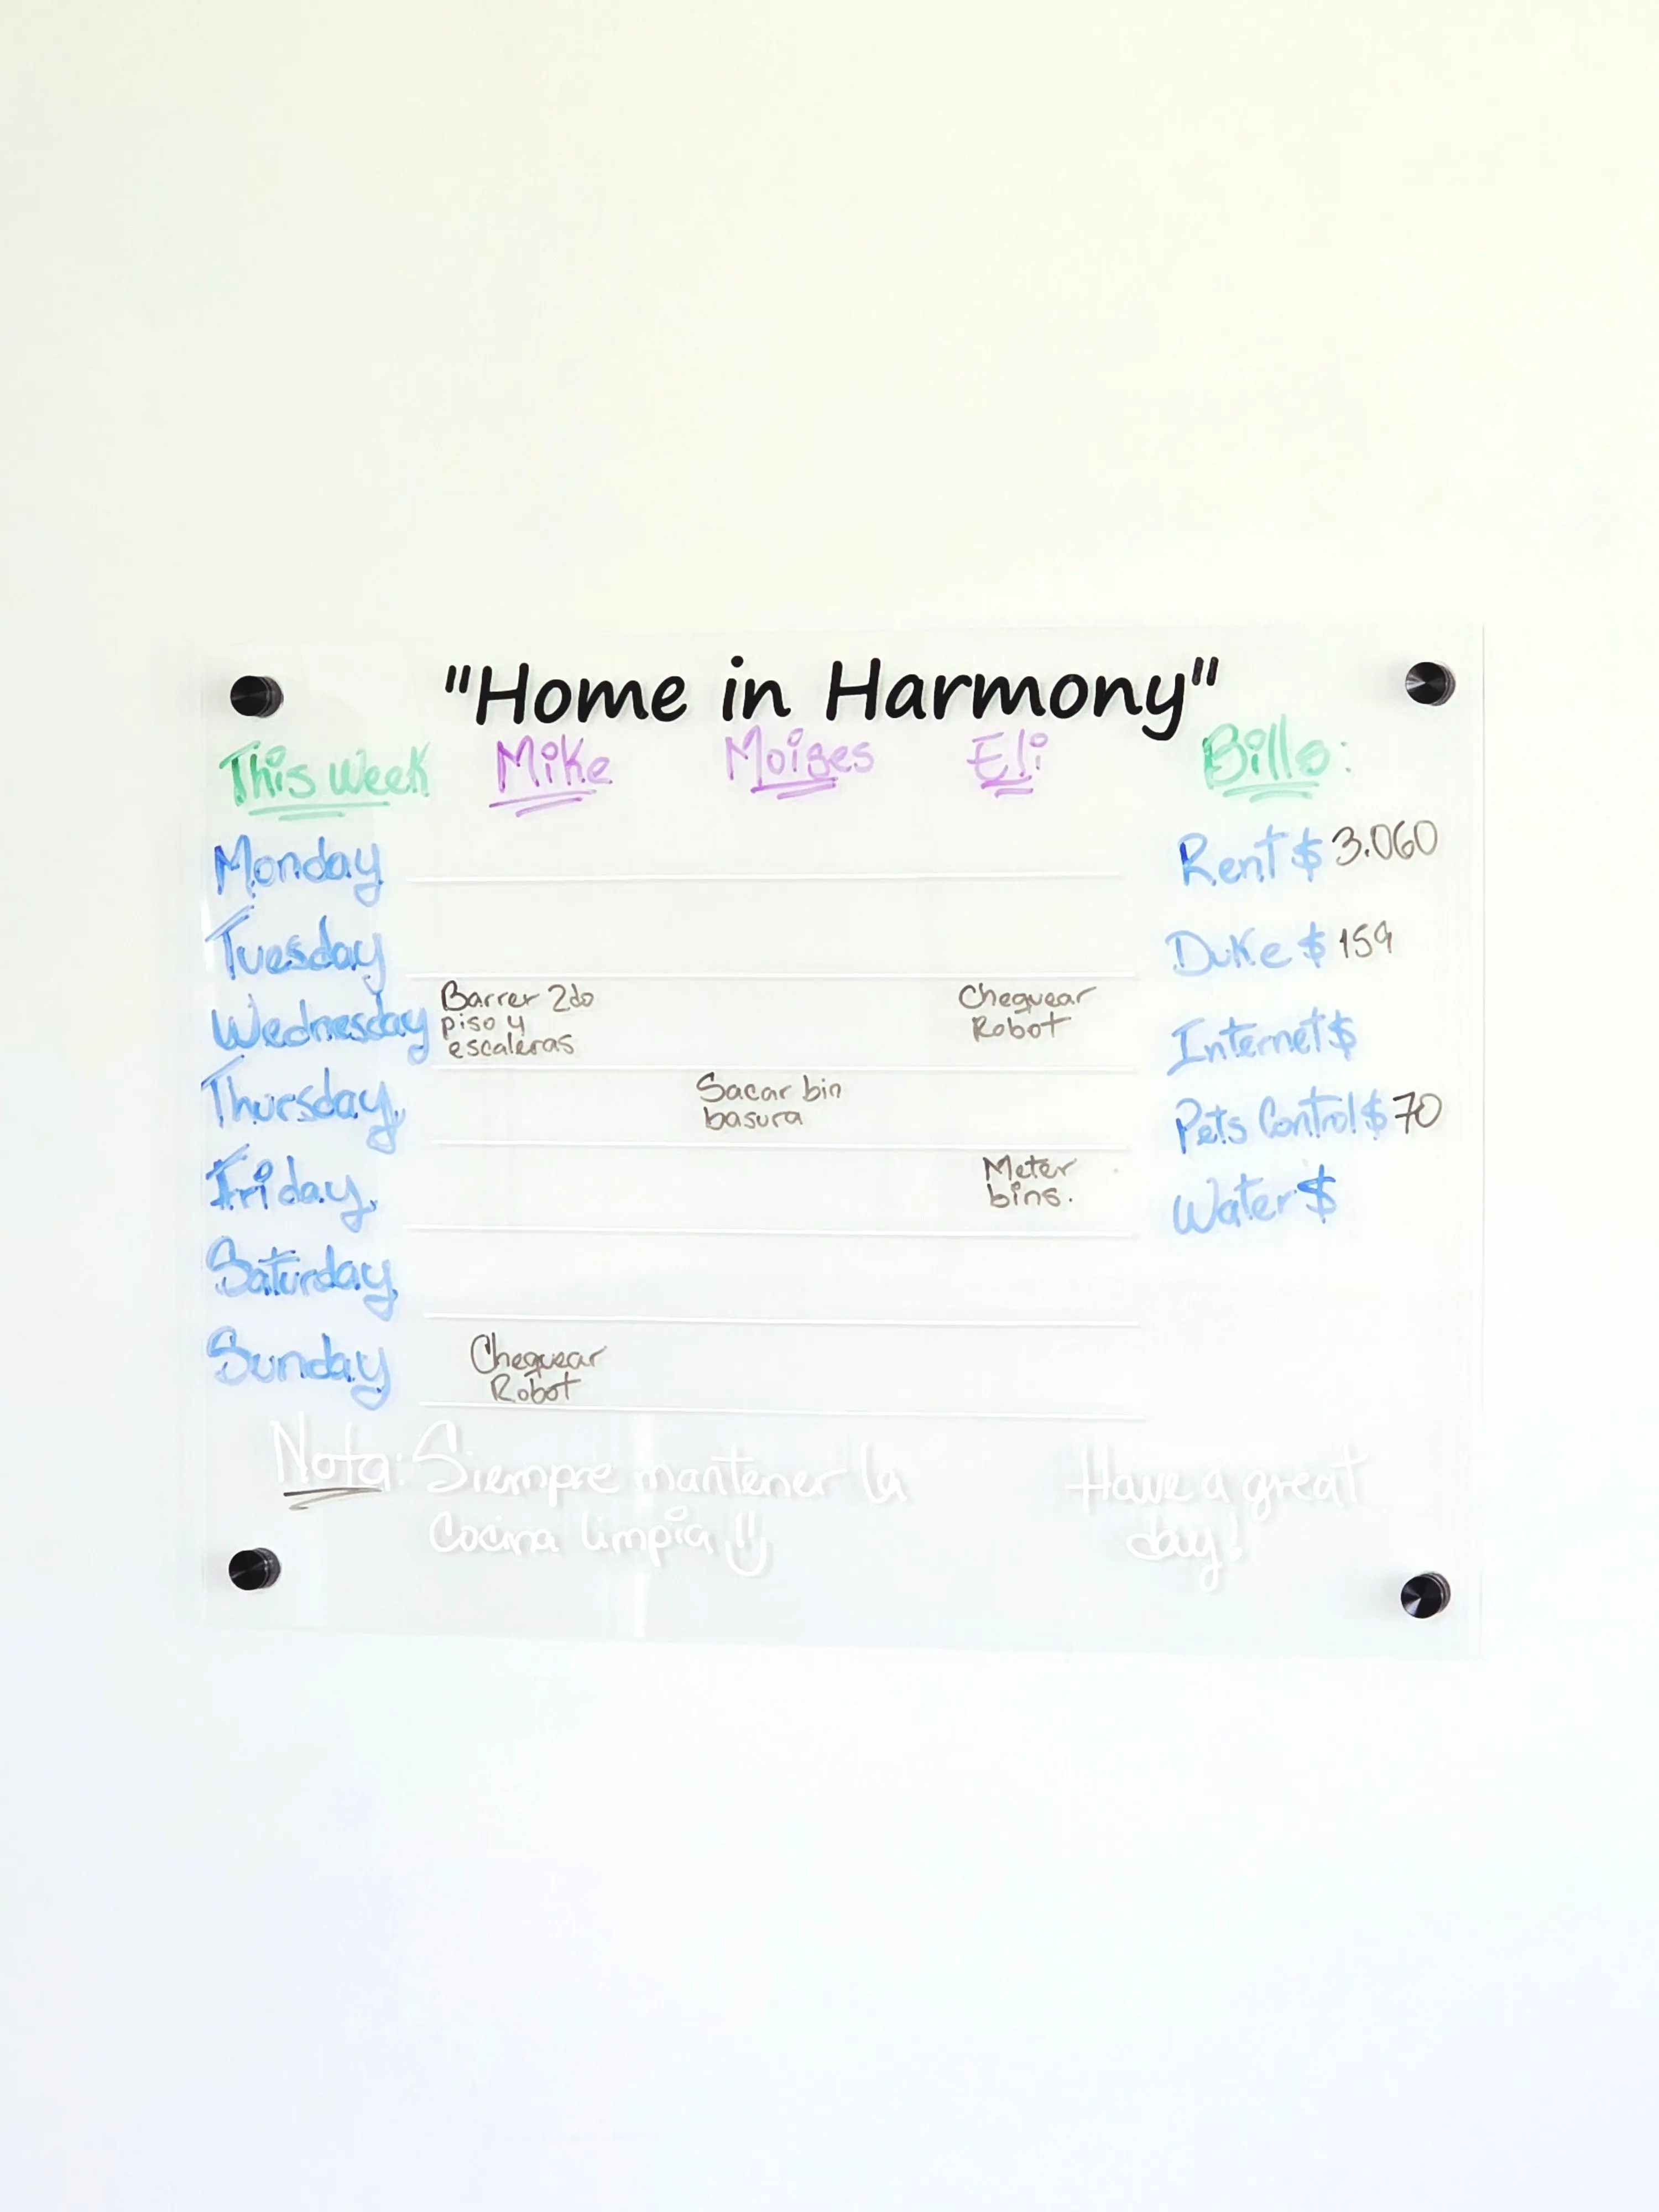 "Home in Harmony"
This week Mike Moises Eli Bills:
Monday Rent $ 3.060
Tuesday Duke $ 159
Wednesday Barrer 2do Chequear Internet $
piso y Robot
escaleras
Thursday Sacar bin Pets Control $ 70
basura
Friday Meter Water $
bins.
Saturday
Sunday Chequear
Robot
Nota: Siempre mantener la Have a great
Cocina limpia day!